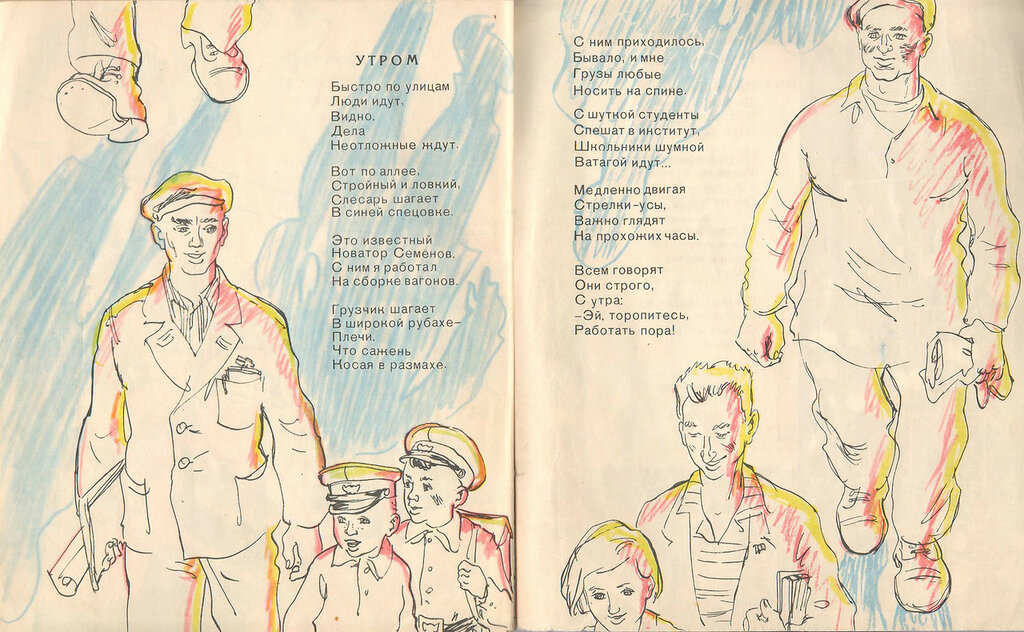 УТРОМ
Быстро по улицам
Люди идут,
Видно,
Дела
Неотложные ждут.
Вот по аллее,
Стройный и ловкий,
Слесарь шагает
В синей спецовке.
Это известный
Новатор Семёнов.
С ним я работал
На сборке вагонов.
Грузчик шагает
В широкой рубахе—
Плечи,
Что сажень
Косая в размахе.
С ним приходилось,
Бывало, и мне
Грузы любые
Носить на спине.
С шуткой студенты
Спешат в институт,
Школьники шумной
Ватагой идут...
Медленно двигая
Стрелки-усы,
Важно глядят
На прохожих часы.
Всем говорят
Они строго,
С утра:
—Эй, торопитесь,
Работать пора!